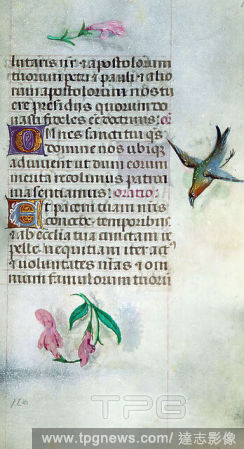 lutaris n̄r ⁊ apostolorum
tuorum petri ⁊ pauli ⁊ alio
rum apostolorum nos tue
re presidijs quorum do
nasti fideles eē doctrinis: or̄
Omnes sancti tui q̄s
domine nos ubiq̄
adiuuent ut dum eorum
merita recolimus patri
na sentiamus: oratio:
Et pacem tuam n̄ris
concede temporibus
⁊ ab ecclesia tua cunctam re
pelle nequitiam iter act⁹
⁊ uoluntates n̄ras ⁊ om
nium famulorum tuorū
TPG
www.tpgnews.com / 達志影像